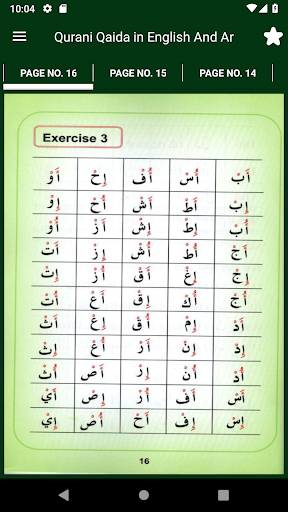 10:04
Qurani Qaida in English And Ar
PAGE NO. 16 PAGE NO. 15 PAGE NO. 14
Exercise 3
أَبْ أُسْ أُفْ إِحْ أَوْ
إِبْ أَطْ أَشْ أُحْ إِوْ
أُبْ إِطْ إِشْ أَزْ أُوْ
أَجْ أُطْ أُشْ إِزْ أَتْ
إِجْ إِغْ أَقْ أُزْ إِتْ
أُجْ أُكْ إِقْ أَعْ أُتْ
أَدْ إِمْ أُقْ إِعْ أَثْ
إِدْ إِنْ أَرْ أُعْ إِثْ
أُدْ أَنْ إِرْ أَصْ أُثْ
أَسْ أَفْ أُرْ إِصْ أَيْ
إِسْ إِفْ أَحْ أُصْ إِيْ
16